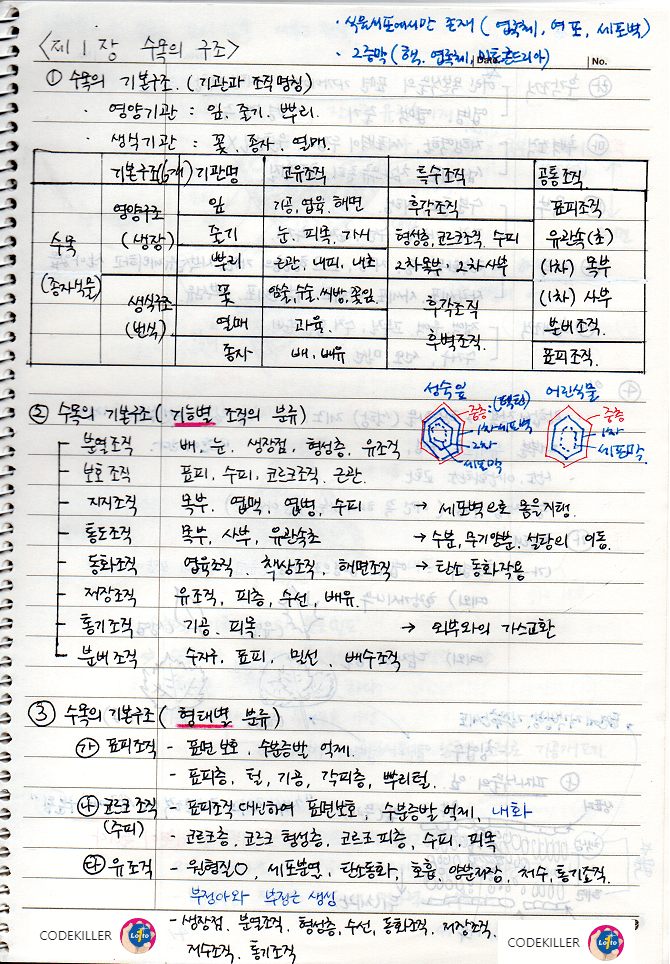 · 식물세포에서만 존재 (엽록체, 액포, 세포벽)
· 2중막 (핵. 엽록체, 미토콘드리아)
<제 1 장 수목의 구조>
No.
① 수목의 기본구조. (기관과 조직명칭)
· 영양기관 : 잎. 줄기. 뿌리.
· 생식기관 : 꽃. 종자. 열매.
기본구조(6개) 기관명 고유조직 특수조직 공통조직.
수목 (종자식물)
영양구조 (생장)
잎 기공, 엽육, 해면 후각조직 표피조직
줄기 눈. 피목. 가시 형성층, 코르크조직, 수피 유관속(초)
뿌리 근관. 내피, 내초 2차목부. 2차사부 (1차) 목부
생식구조 (번식)
꽃 암술, 수술. 씨방, 꽃잎 후각조직 (1차) 사부
열매 과육. 후벽조직. 분비조직.
종자 배. 배유 표피조직.
성숙잎 어린식물
② 수목의 기본구조 (기능별 조직의 분류)
중층 (펙틴)
1차세포벽
2차
세포막
중층
1차
세포막
분열조직 배, 눈. 생장점, 형성층, 유조직
보호조직 표피, 수피, 코르크조직. 근관.
지지조직 목부. 엽맥, 엽병, 수피 → 세포벽으로 몸을지탱.
통도조직 목부, 사부, 유관속초 → 수분, 무기양분. 설탕의 이동.
동화조직 엽육조직. 책상조직, 해면조직 → 탄소 동화작용
저장조직 유조직, 피층, 수선, 배유.
통기조직 기공. 피목. → 외부와의 가스교환
분비조직 수지구, 표피, 밀선. 배수조직
③ 수목의 기본구조 (형태별 분류)
㉮ 표피조직 - 표면보호. 수분증발 억제.
- 표피층, 털, 기공, 각피층, 뿌리털.
㉯ 코르크조직 - 표피조직 대신하여 표면보호, 수분증발 억제, 내화
(주피) - 코르크층, 코르크 형성층, 코르크피층, 수피. 피목
㉰ 유조직 - 원형질O, 세포분열, 탄소동화, 호흡, 양분저장, 저수, 통기조직.
부정아와 부정근 생성
- 생장점. 분열조직. 형성층, 수선, 동화조직, 저장조직.
저수조직. 통기조직
CODEKILLER Lotto
CODEKILLER Lotto